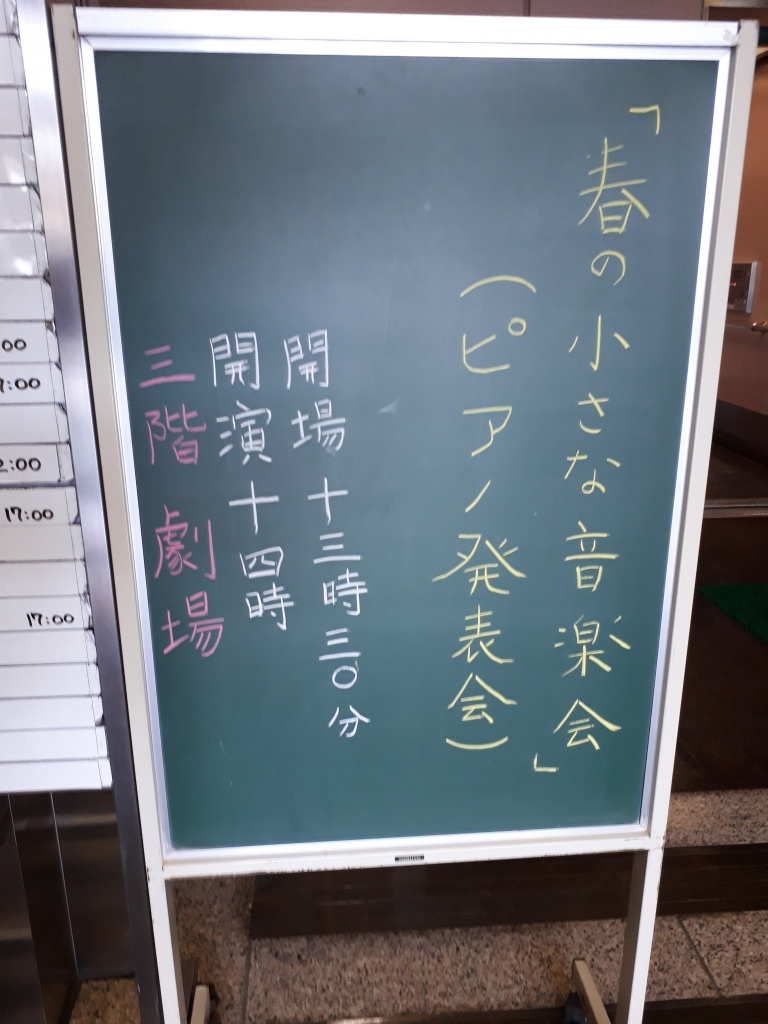 「春の小さな音楽会」
(ピアノ発表会)
開場 十三時三〇分
開演 十四時
三階 劇場
:00
:00
2:00
17:00
17:00